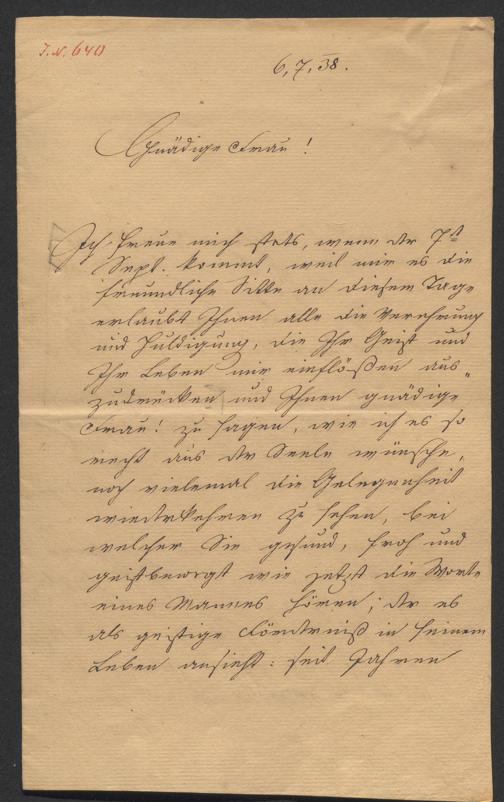 I. N. 640
6, 7, 38.
Gnädige Frau!
Ich freue mich stets, wenn der 7t
Sept. kommt, weil mir es die
freundliche Sitte an diesem Tage
erlaubt Ihnen alle die Verehrung
und Huldigung, die Ihr Geist und
Ihr Leben mir einflößen aus-
zudrücken und Ihnen gnädige
Frau! zu sagen, wie ich es so
recht aus der Seele wünsche,
noch vielemal die Gelegenheit
wiederkehren zu sehen, bei
welcher Sie gesund, froh und
wie jetzt die Worte
eines Mannes hören; der es
als geistige Förderniß in seinem
Leben ansieht: seit Jahren